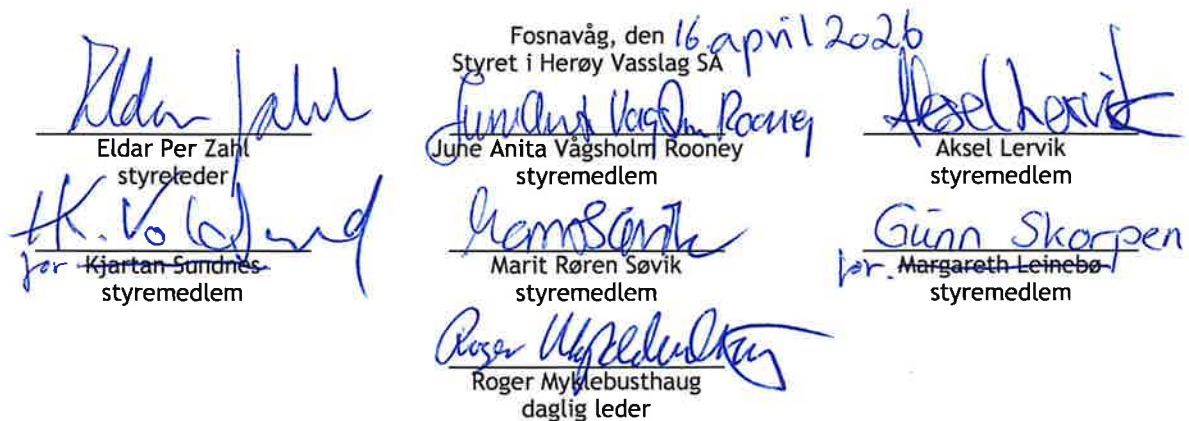 Fosnavåg, den 16. april 2026
Styret i Herøy Vasslag SA
Eldar Zahl
June Anita Vågsholm Rooney
Aksel Lervik
Eldar Per Zahl
styreleder
June Anita Vågsholm Rooney
styremedlem
Aksel Lervik
styremedlem
for Kjartan Sundnes
styremedlem
Marit Røren Søvik
styremedlem
Gunn Skorpen
for. Margareth Leinebø
styremedlem
Roger Myklebusthaug
Roger Myklebusthaug
daglig leder